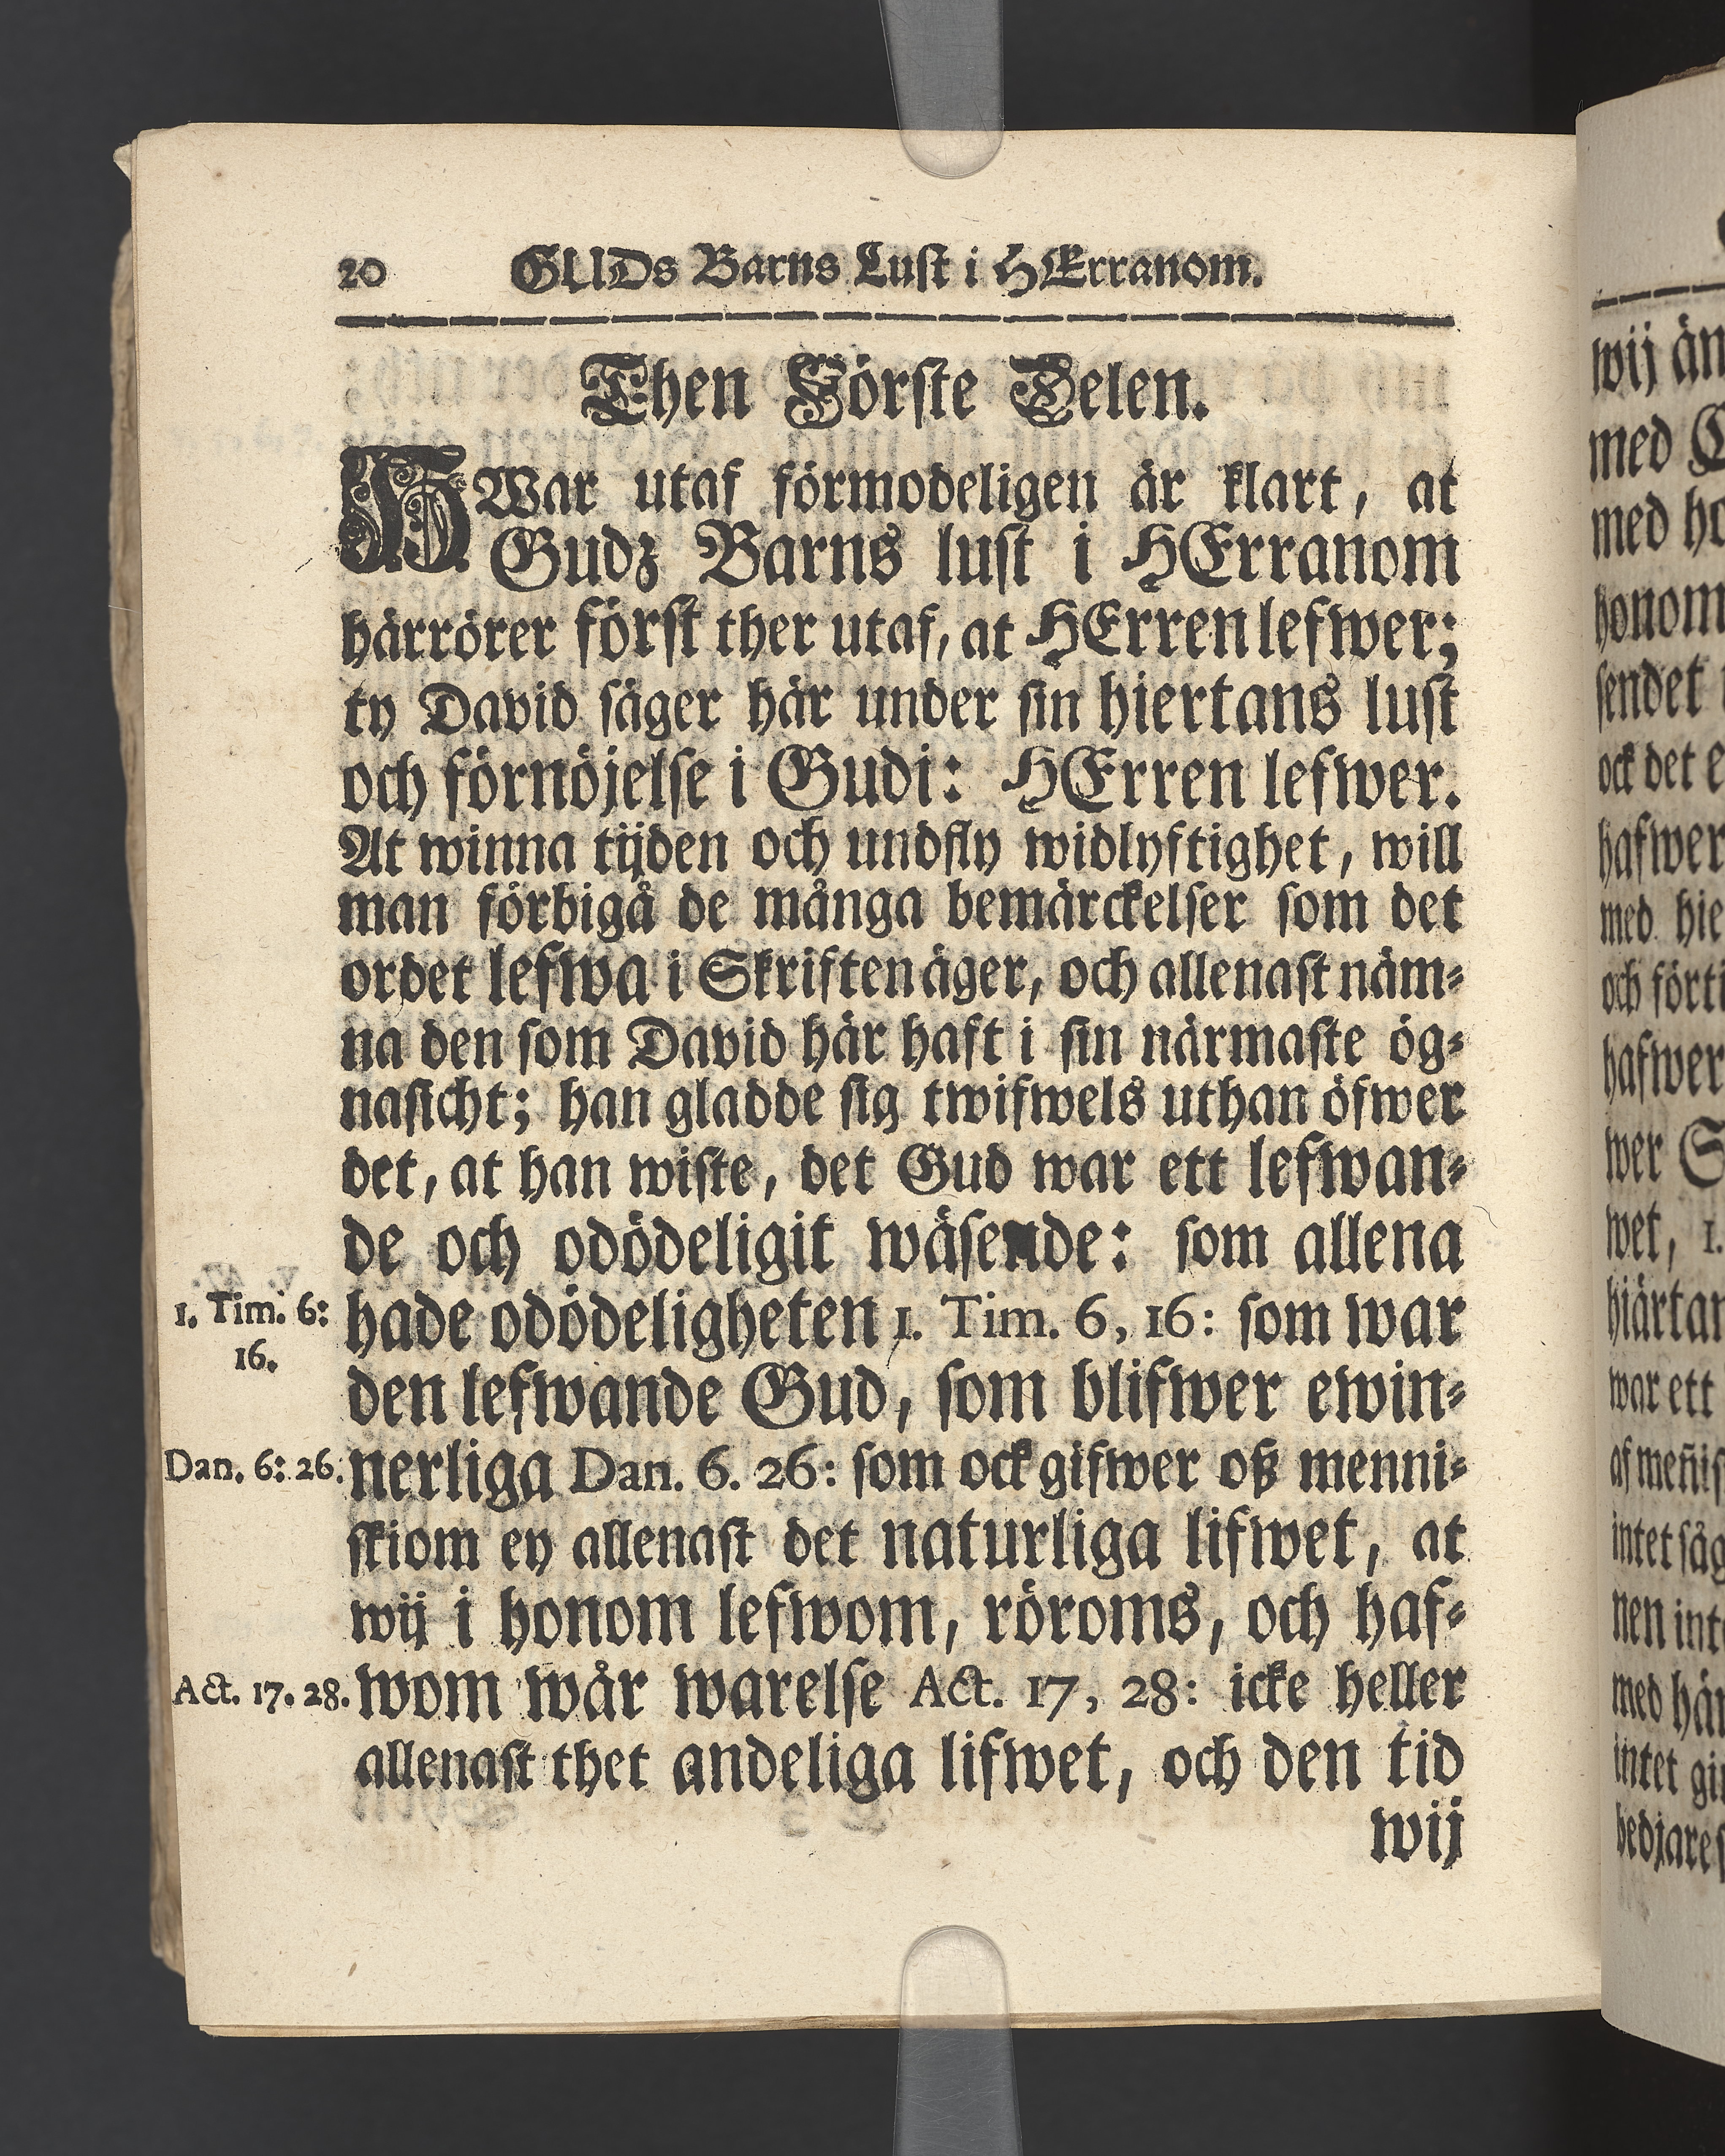 20 GUDs Barns Lust i HErranom.
Then Förste Delen.
HWar utaf förmodeligen är klart, at
Gudz Barns lust i HErranom
härrörer först ther utaf, at HErren lefwer;
ty David säger här under sin hiertans lust
och förnöjelse i Gudi: HErren lefwer.
At winna tijden och undfly widlyftighet, will
man förbigå de många bemärckelser som det
ordet lefwa i Skriften äger, och allenast näm-
na den som David här haft i sin närmaste ög-
nasicht; han gladde sig twifwels uthan öfwer
det, at han wiste, det Gud war ett lefwan-
de och odödeligit wäsende: som allena
1. Tim. 6:
16.
hade odödeligheten 1. Tim. 6, 16: som war
den lefwande Gud, som blifwer ewin-
Dan. 6: 26. nerliga Dan. 6. 26: som ock gifwer oß menni-
skiom ey allenast det naturliga lifwet, at
wij i honom lefwom, röroms, och haf-
Act. 17. 28. wom wår warelse Act. 17, 28: icke heller
allenast thet andeliga lifwet, och den tid
wij
wij
med
med
honom
sendet
ock det
hafwer
med hie
och
hafwer
wer
wet, 1.
war ett
intet
nen
med
intet